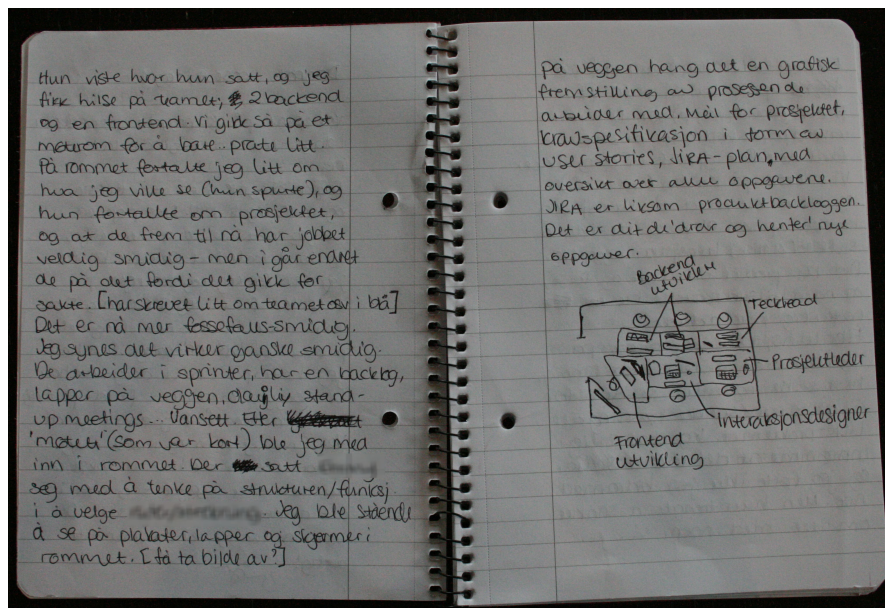 Hun viste hvor hun satt, og jeg
fikk hilse på teamet, 2 backend
og en frontend. Vi gikk så på et
møterom for å bare prate litt.
På rommet fortalte jeg litt om
hva jeg ville se (hun spurte), og
hun fortalte om prosjektet,
og at de frem til nå har jobbet
veldig smidig - men i går endret
de på det fordi det gikk for
sakte. [har skrevet litt om teamet osv i blå]
Det er nå mer fossefalls-smidig.
Jeg synes det virker ganske smidig.
De arbeider i sprinter, har en backlog,
lapper på veggen, daglig stand-
up meetings... Uansett. Etter
'møtet' (som var kort) ble jeg med
inn i rommet. Der satt
seg med å tenke på strukturen/funksj.
i å velge . Jeg ble stående
å se på plakater, lapper og skjermer i
rommet. [få ta bilde av?]
på veggen hang det en grafisk
fremstilling av prosessen de
arbeider med. Mål for prosjektet,
kravspesifikasjon i form av
user stories, JIRA-plan, med
oversikt over alle oppgavene.
JIRA er liksom produktbackloggen.
Det er dit de 'drar og henter' nye
oppgaver.
Backend
utviklere
Techlead
Prosjektleder
Interaksjonsdesigner
Frontend
utvikling